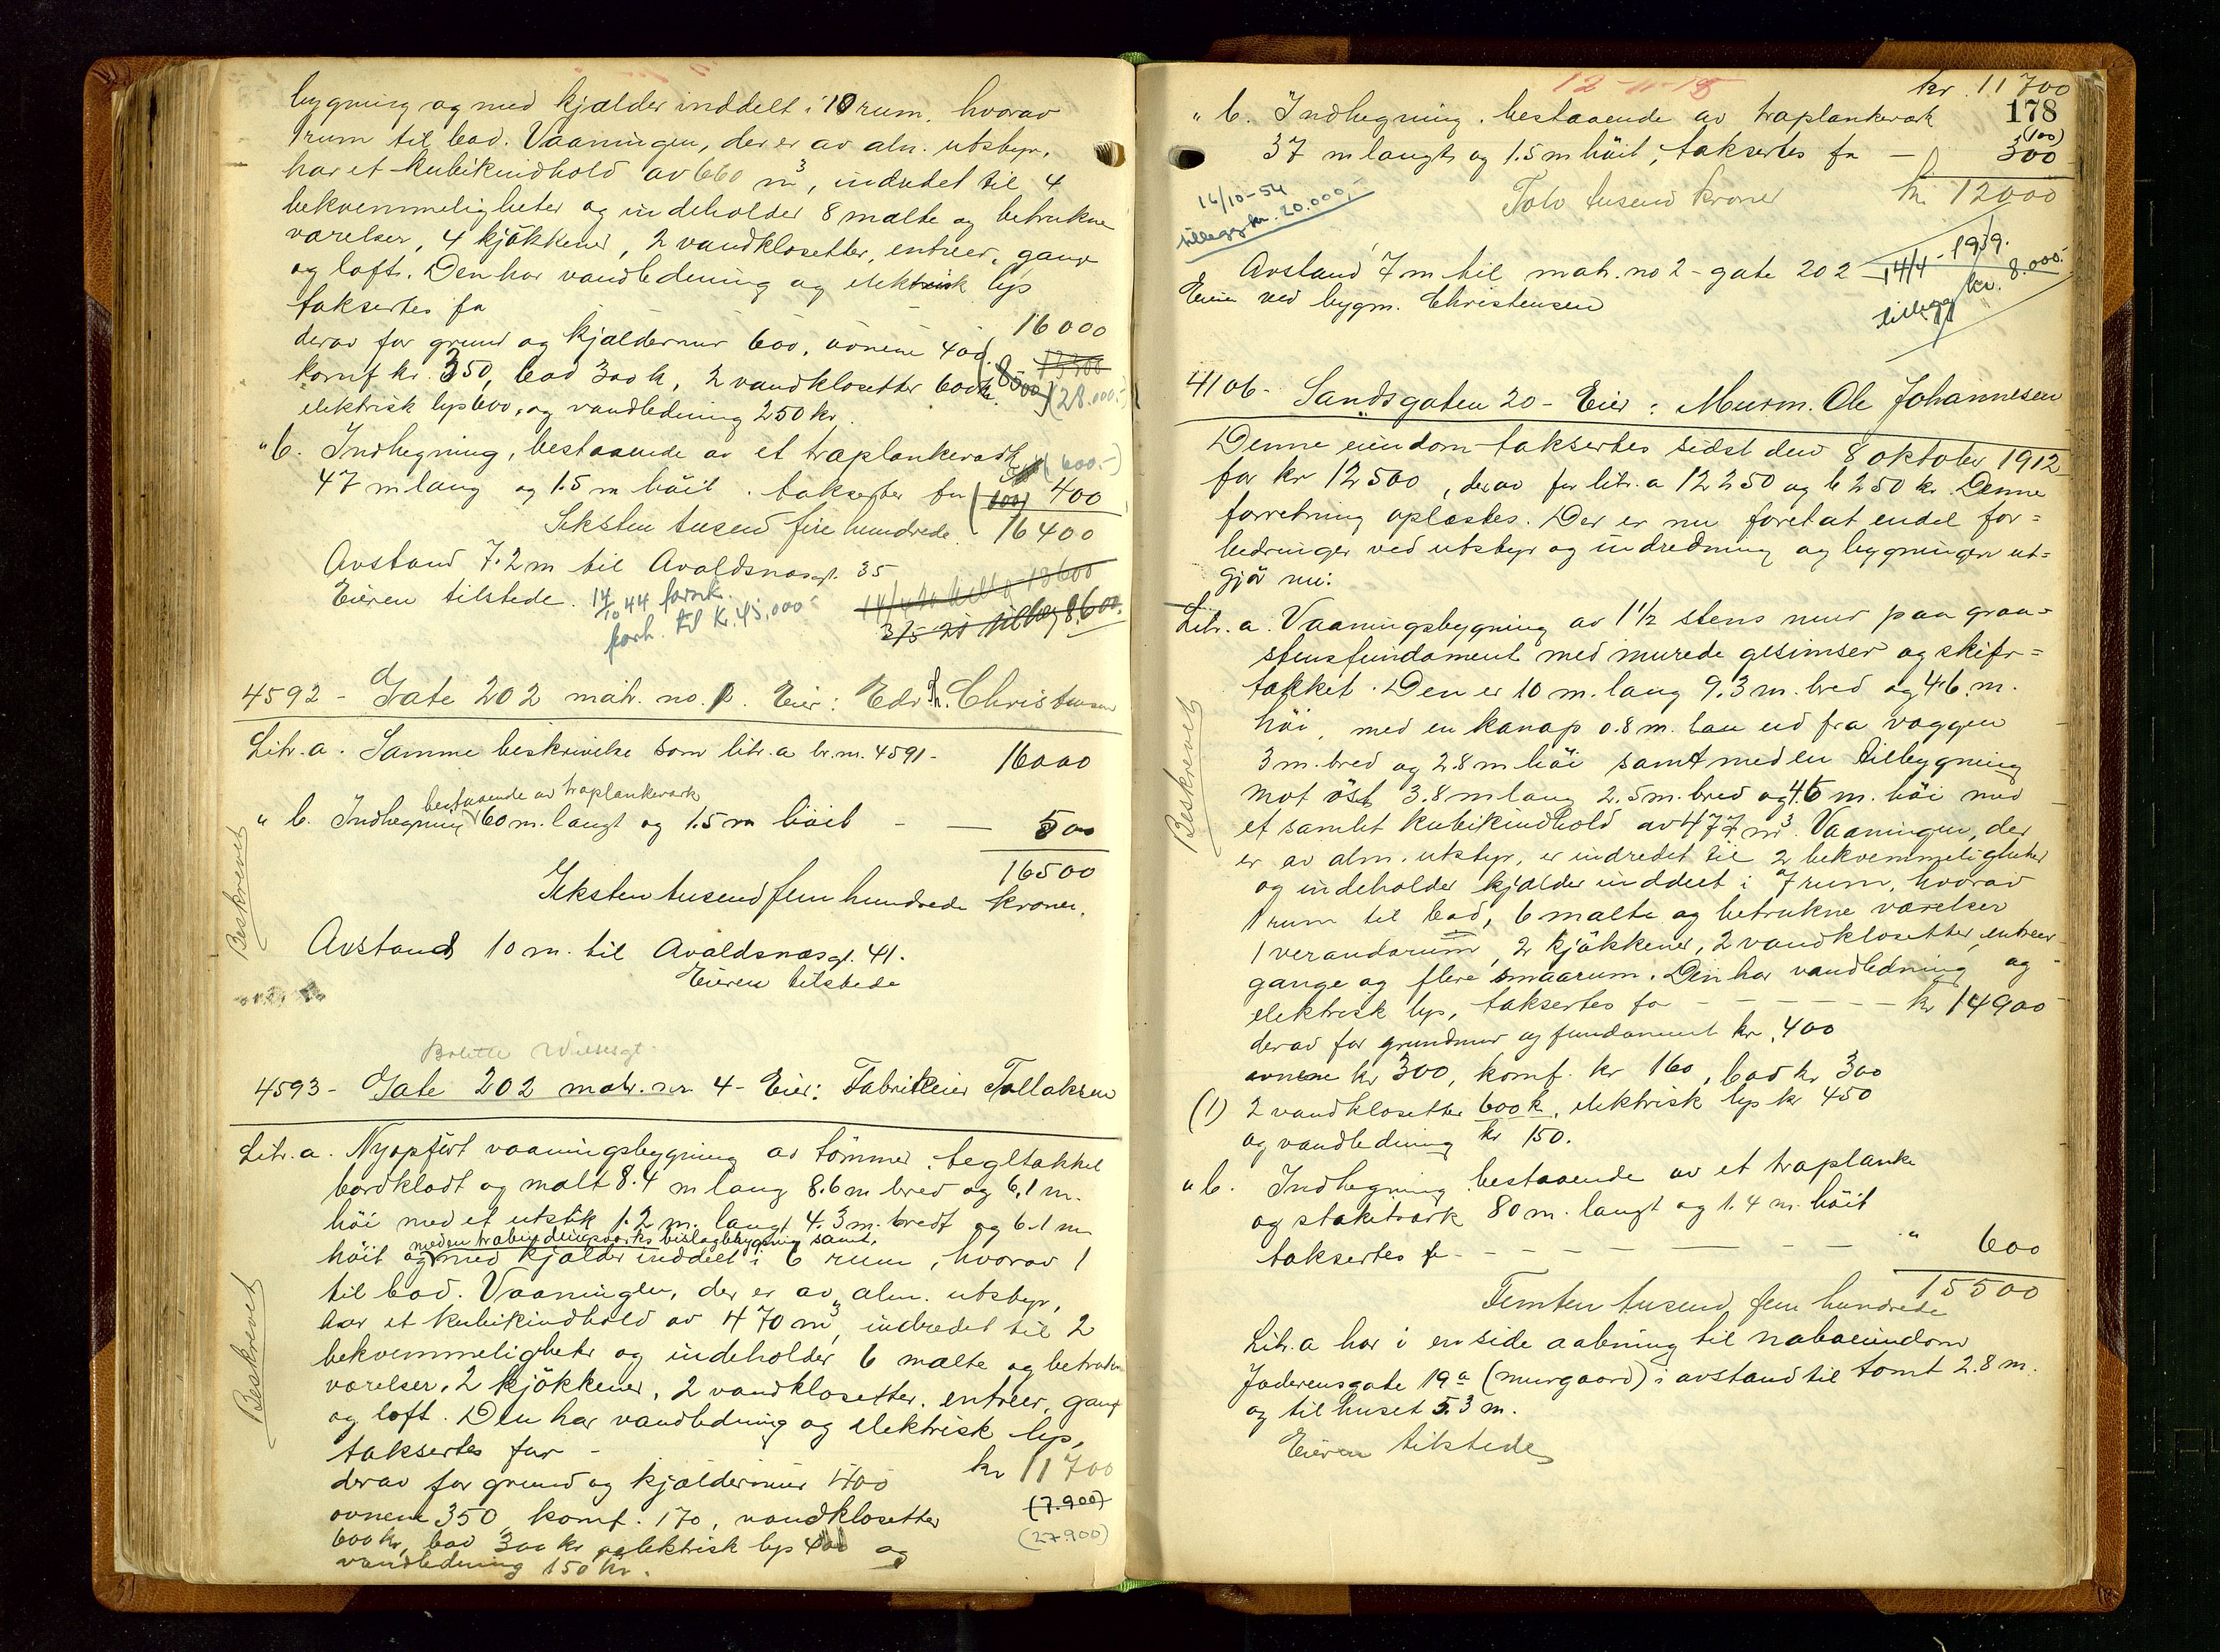 bygning og med kjælder inddelt i 10 rum, hvorav
1 rum til bad. Vaaningen, der er av alm. utstyr,
har et kubikindhold av 660 m³, indredet til 4
bekvemmeligheter og indeholder 8 malte og betrukne
værelser, 4 kjøkkener, 2 vandklosetter, entreer, gang
og loft. Den har vandledning og elektrisk lys
taksertes for 16000
derav for grund og kjældermur 600, ovnene 400
komf kr. 350, bad 300 kr, 2 vandklosetter 600 kr. (8000) (28.000.-)
elektrisk lys 600, og vandledning 250 kr.
" b. Indhegning, bestaaende av et træplankeværk (600.-)
47 m lang og 1.5 m høit, taksertes for 400
Seksten tusend fire hundrede 16400
Avstand 7.2 m til Avaldsnæsgt. 35
Eieren tilstede. 14/10 44 forsk.
forh. til kr. 45.000
3/5 20 tillæg 8.600.
4592 - Gate 202 matr. no. Eier: Edv. Christensen
Litr. a. Samme beskrivelse som litr. a br. nr. 4591 - 16000
bestaaende av træplankeværk
" b. Indhegning 60 m. langt og 1.5 m høit - — 500
16500
Seksten tusend fem hundrede kroner.
Avstand 10 m. til Avaldsnæsgt. 41.
Eieren tilstede
Beskrevet
Bolette Wiesesgt.
4593 - Gate 202 matr. nr. 4 - Eier: Fabrikeier Tallaksen
Litr. a. Nyopført vaaningsbygning av tømmer, tegltækket
bordklædt og malt 8.4 m lang 8.6 m bred og 6.1 m.
høi med et utstik 1.2 m. langt 4.3 m. bredt og 6.1 m
med en træbindingsværks bislagbygning samt
høit og med kjælder inddelt i 6 rum, hvorav 1
til bad. Vaaningen, der er av alm. utstyr,
har et kubikindhold av 470 m³, indredet til 2
bekvemmeligheter og indeholder 6 malte og betrukne
værelser, 2 kjøkkener, 2 vandklosetter, entreer, gang
og loft. Den har vandledning og elektrisk lys,
taksertes for - kr 11700
derav for grund og kjældermur 400
ovnene 350, komf. 170, vandklosetter (7.900)
600 kr, bad 300 kr, elektrisk lys 400 og (27.900)
vandledning 150 kr.
Beskrevet
12-11-18
kr. 11700
178
" b. Indhegning, bestaaende av træplankeværk (100)
37 m langt og 1.5 m høit, taksertes for — 300
Tolv tusend kroner kr. 12000
16/10-54
tillegg kr. 20.000,-
Avstand 7 m til matr. no 2 - gate 202
14/4 - 1919.
tillegg kr. 8.000.-
Eieren ved bygm. Christensen
4106 - Sandsgaten 20 - Eier: Murm. Ole Johannesen
Denne eiendom taksertes sidst den 8 oktober 1912
for kr 12500, derav for litr. a 12250 og b 250 kr. Denne
forretning oplæstes. Der er nu foretat endel for=
bedringer ved utstyr og indredning og bygningen ut=
gjør nu:
Litr. a. Vaaningsbygning av 1 1/2 stens mur paa graa=
stensfundament med murede gesimser og skifer=
tækket. Den er 10 m. lang 9.3 m. bred og 4.6 m.
høi, med en kanap 0.8 m. lan ud fra væggen
3 m. bred og 2.8 m høi samt med en tilbygning
mot øst 3.8 m lang 2.5 m. bred og 4.6 m. høi med
et samlet kubikindhold av 477 m³. Vaaningen, der
er av alm. utstyr, er indredet til 2 bekvemmeligheter
og indeholder kjælder inddelt i 7 rum, hvorav
1 rum til bad, 6 malte og betrukne værelser
1 verandarum, 2 kjøkkener, 2 vandklosetter, entreer
gange og flere smaarum. Den har vandledning og
elektrisk lys, taksertes for - - - - - kr 14900
derav for grundmur og fundament kr. 400
ovnene kr 300, komf. kr 160, bad kr 300
(1) 2 vandklosetter 600 k, elektrisk lys kr 450
og vandledning kr 150.
" b. Indhegning bestaaende av et træplanke
og stakitværk 80 m. langt og 1.4 m. høit
taksertes for - - - - - " 600
15500
Femten tusend fem hundrede
Litr. a har i en side aabning til naboeiendom
Jæderensgate 19a (murgaard) i avstand til tomt 2.8 m.
og til huset 5.3 m.
Eieren tilstede
Beskrevet